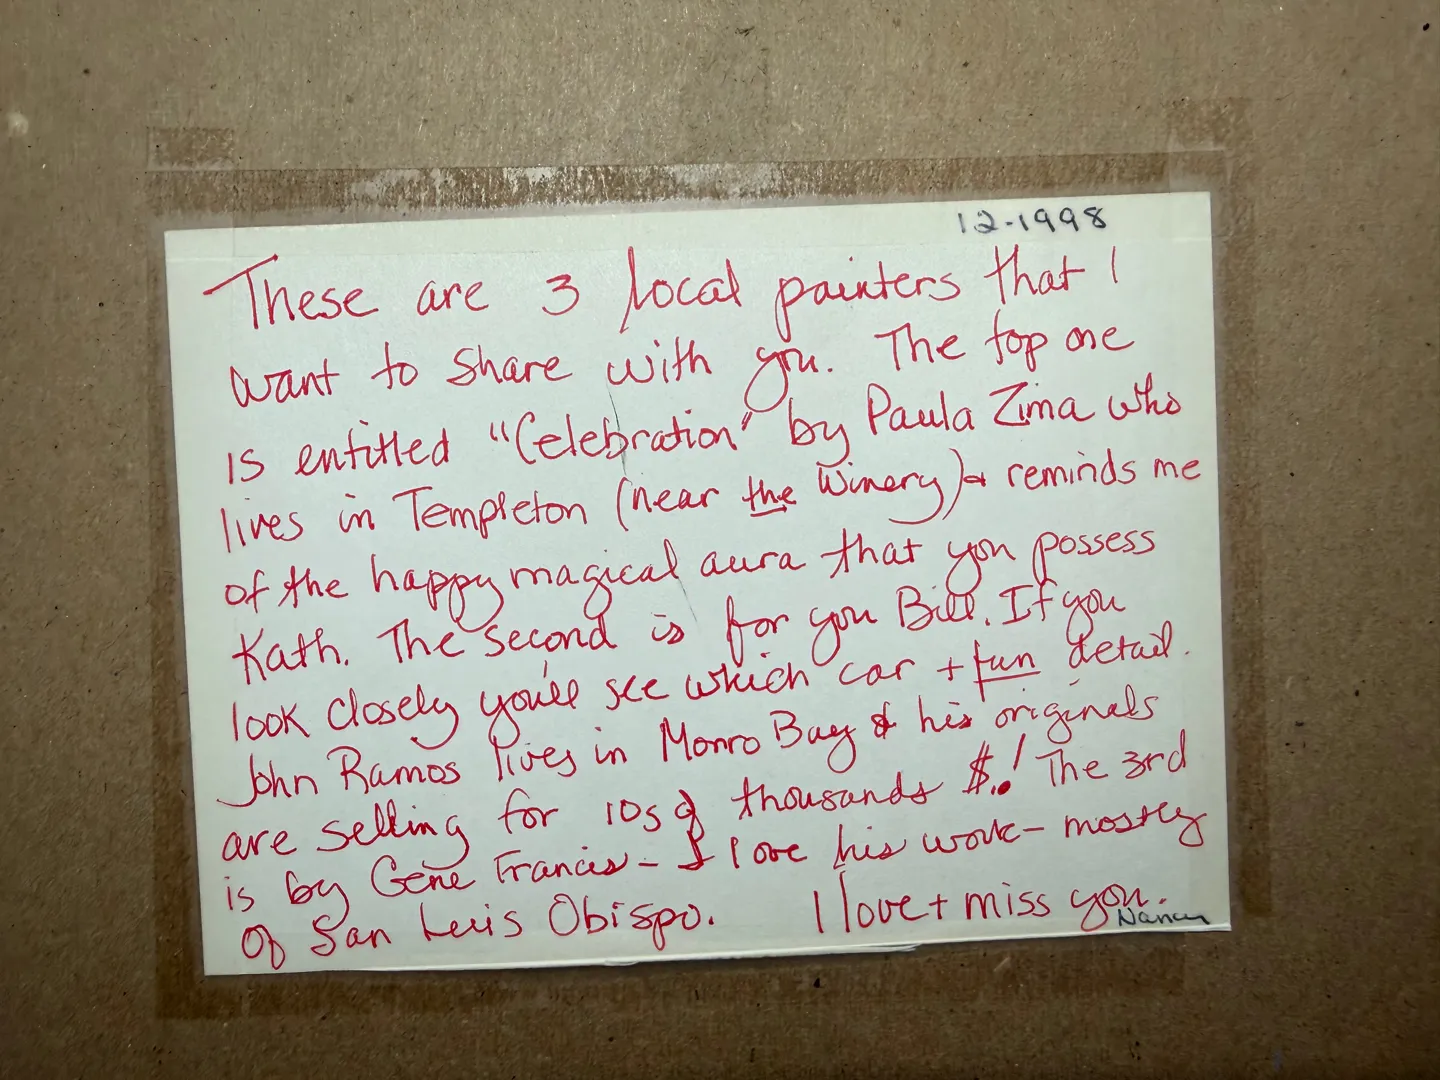 12-1998
These are 3 local painters that I
want to share with you. The top one
is entitled "Celebration" by Paula Zima who
lives in Templeton (near the Winery) & reminds me
of the happy magical aura that you possess
Kath. The second is for you Bill. If you
look closely you'll see which car + fun detail.
John Ramos lives in Morro Bay & his originals
are selling for 10s of thousands $.! The 3rd
is by Gene Francis - I love his work - mostly
of San Luis Obispo. I love + miss you.
Nancy